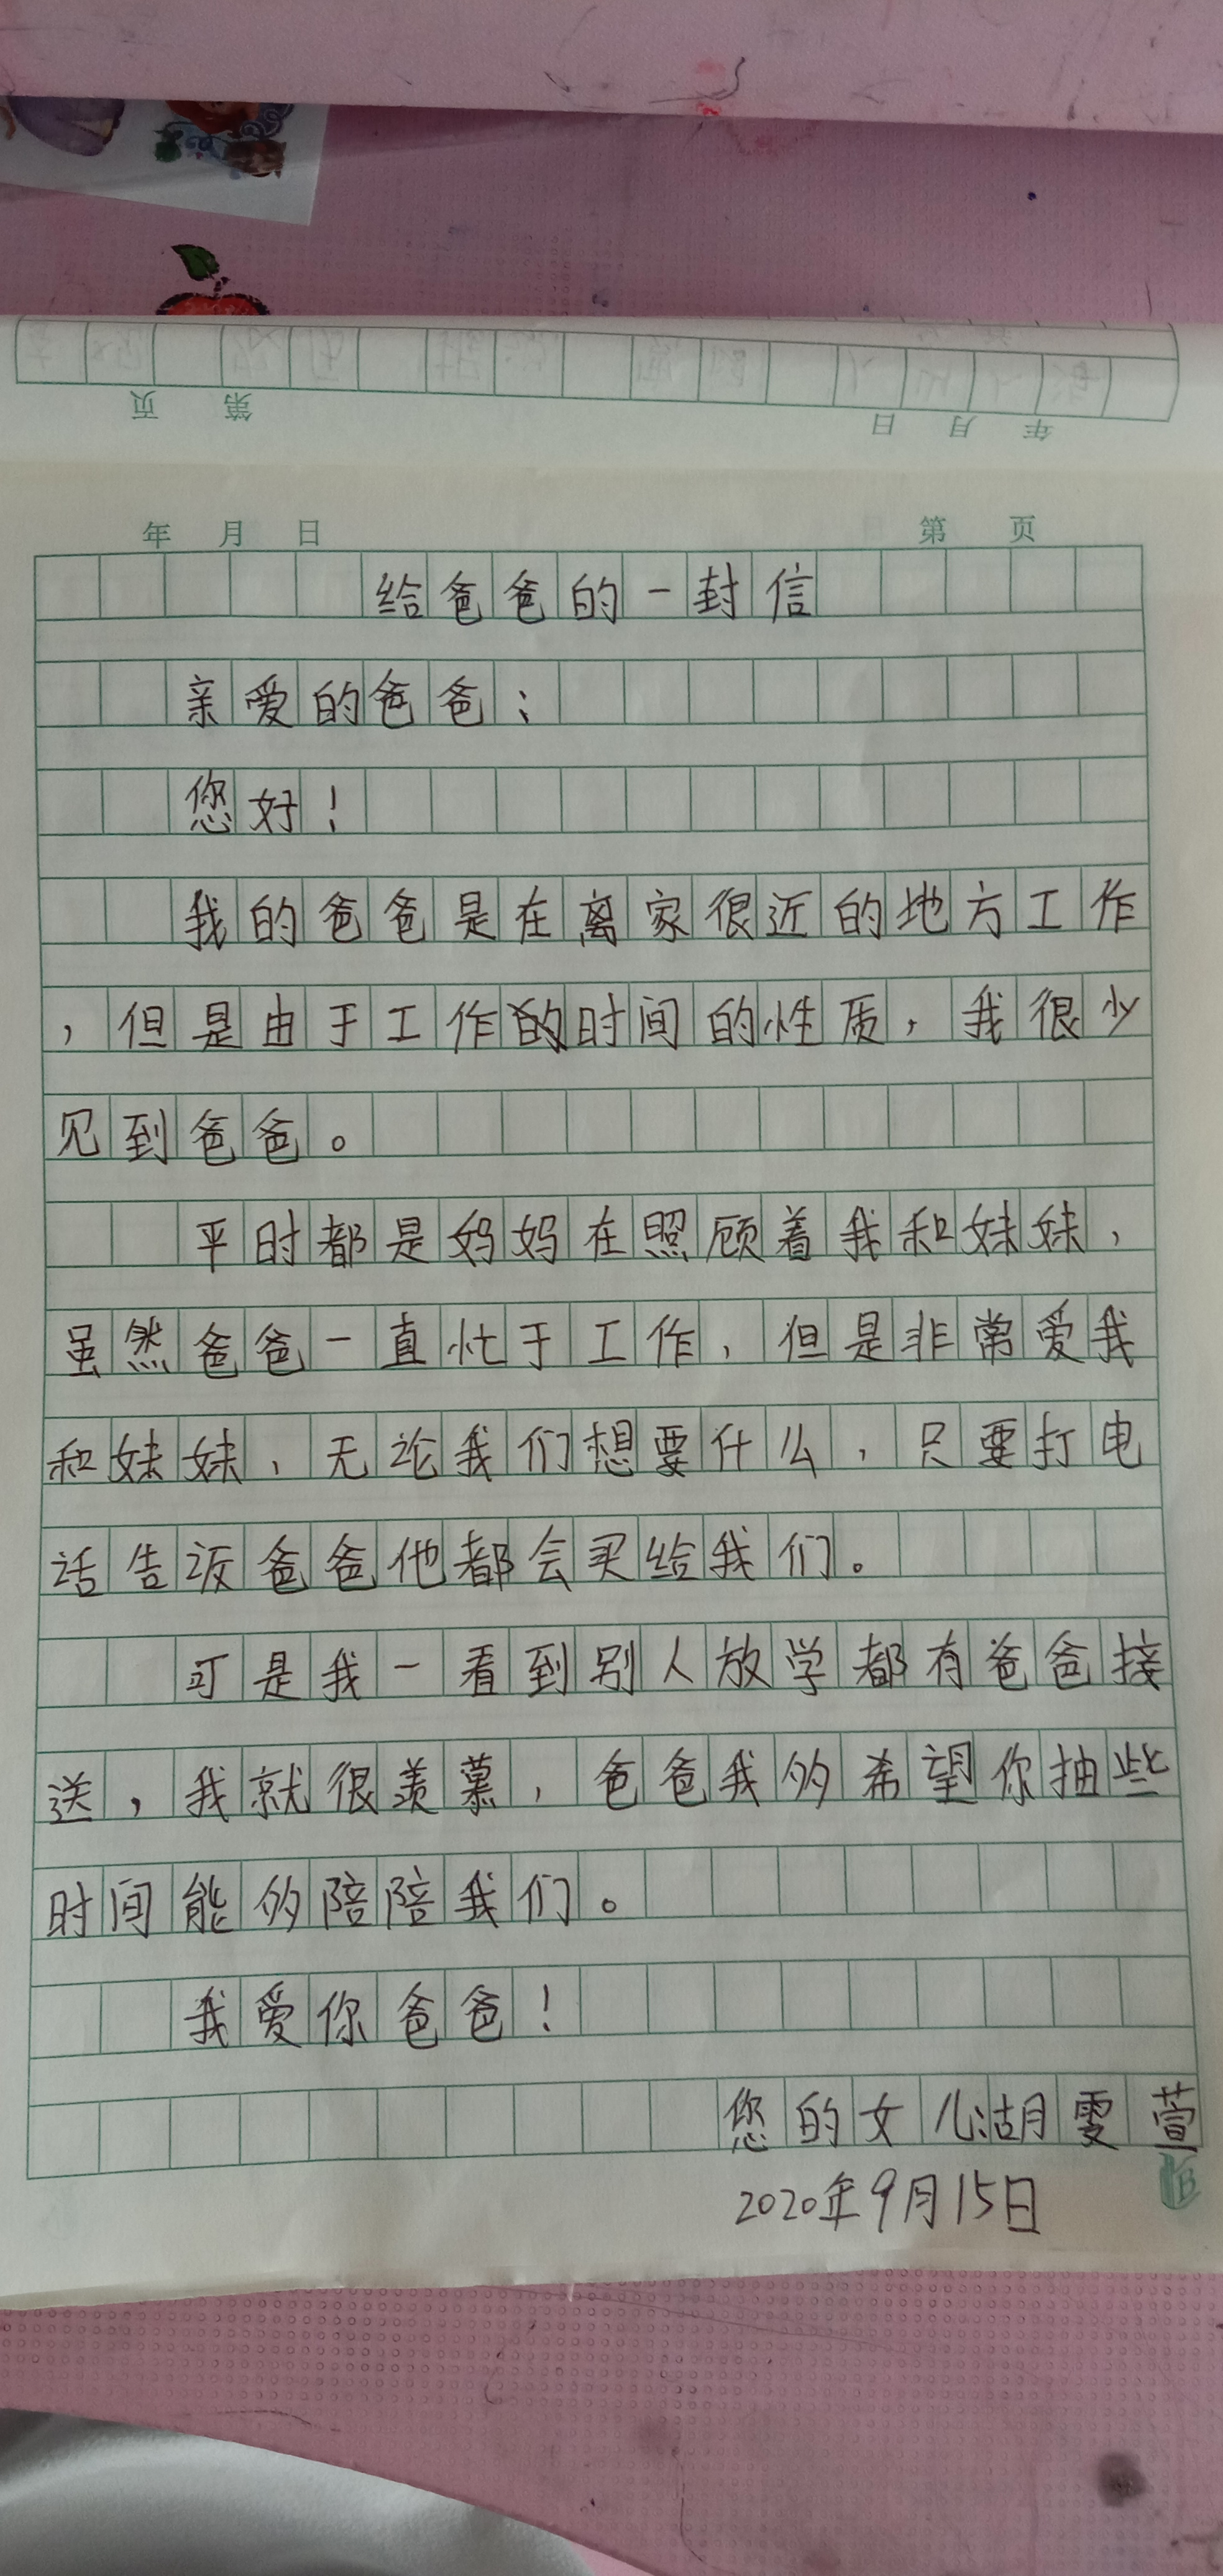 年 月 日 第 页
给爸爸的一封信
亲爱的爸爸：
您好！
我的爸爸是在离家很近的地方工作
，但是由于工作的时间的性质，我很少
见到爸爸。
平时都是妈妈在照顾着我和妹妹，
虽然爸爸一直忙于工作，但是非常爱我
和妹妹，无论我们想要什么，只要打电
话告诉爸爸他都会买给我们。
可是我一看到别人放学都有爸爸接
送，我就很羡慕，爸爸我的希望你抽些
时间能的陪陪我们。
我爱你爸爸！
您的女儿:胡雯萱
2020年9月15日